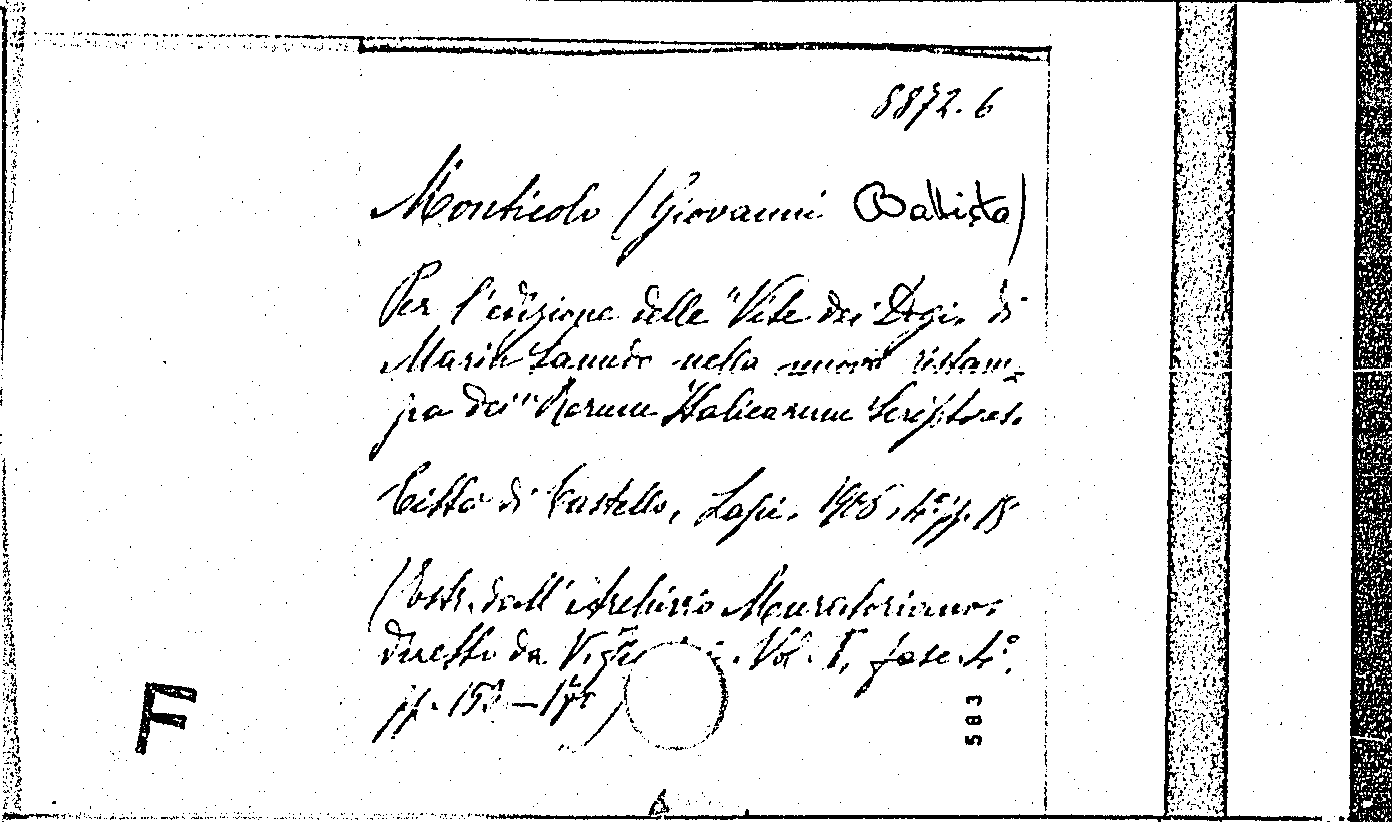 8872.6
Monticolo (Giovanni Battista)
Per l'edizione delle "Vite dei Dogi" di
Marin Sanudo nella nuova ristam=
pa dei "Rerum Italicarum Scriptores.
Città di Castello, Lapi. 4° pp. 15
(Estr. dall'Archivio Muratoriano.
diretto da Vol. I, fasc. 4°.
pp. 153 —
F
583